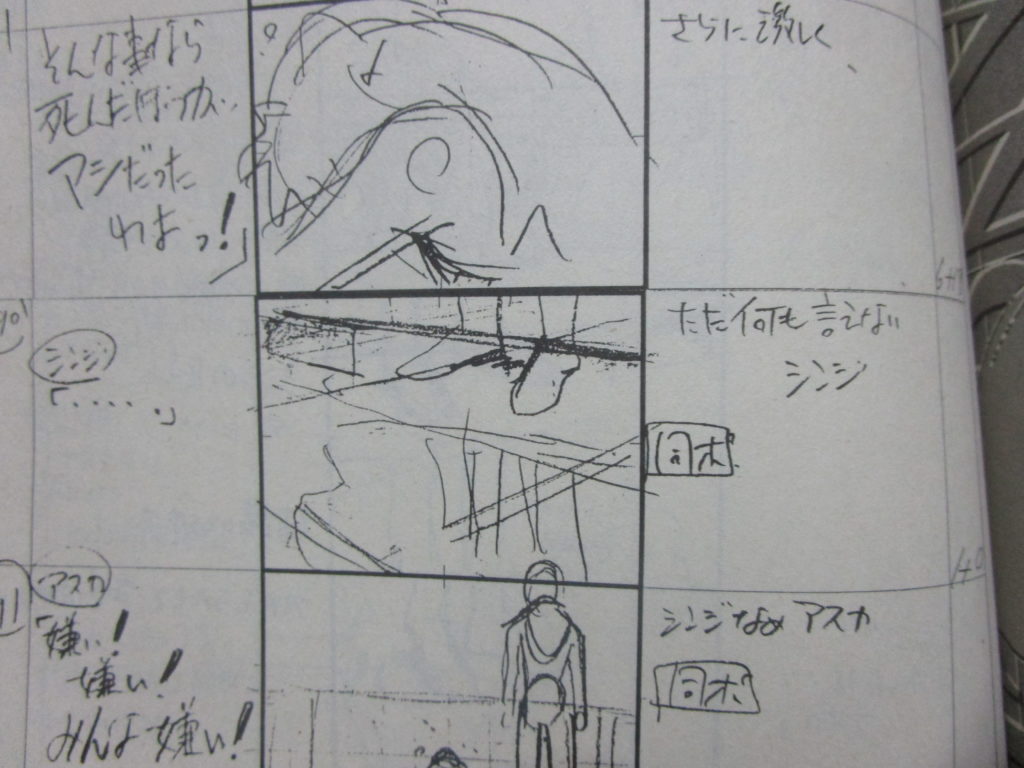 そんな事なら
死んだ
マシだった
わよっ!」
さらに激しく
6+0
シンジ
「・・・・・」
ただ何も言えない
シンジ
同ポ
4+0
アスカ
「嫌い!
嫌い!
みんな嫌い!
シンジなめアスカ
同ポ